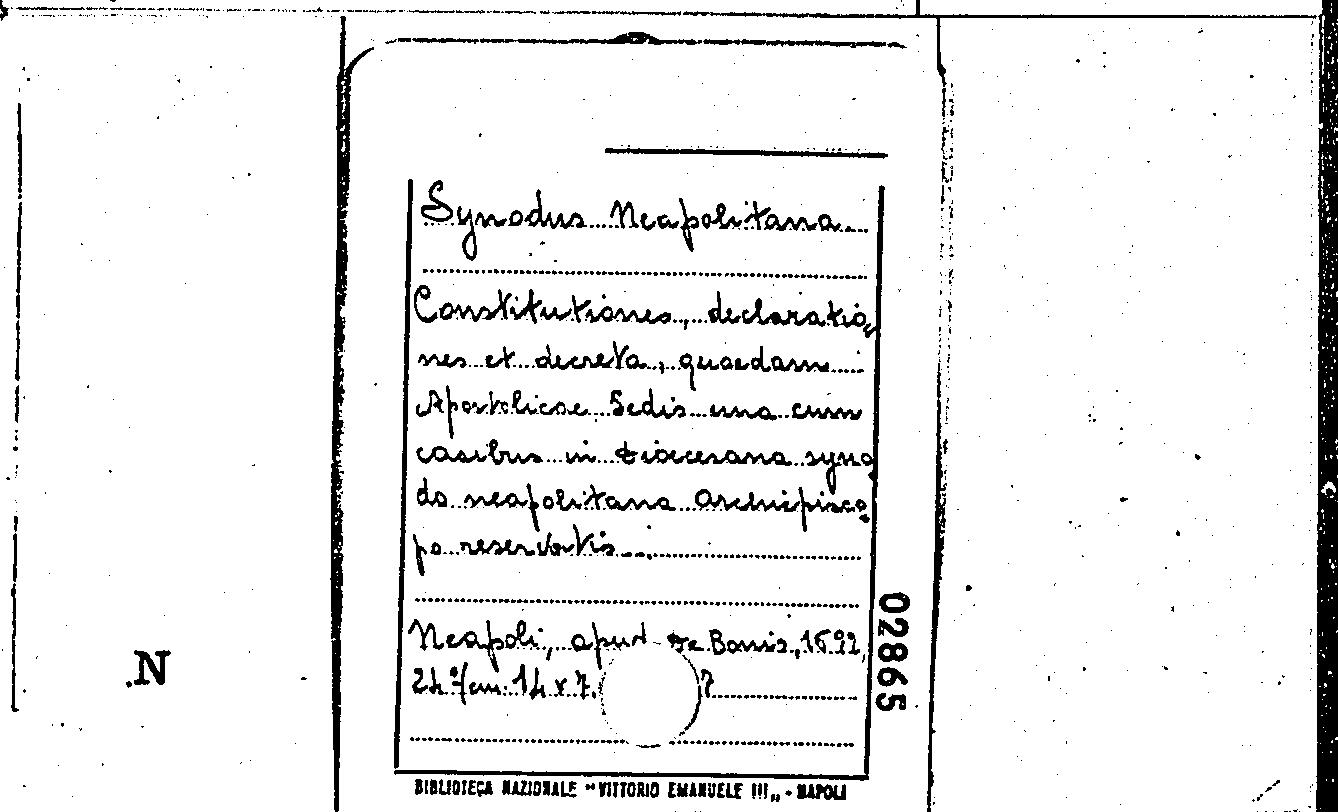 Synodus Neapolitana
Constitutiones, declaratio
nes et decreta, quaedam
Apostolicae Sedis una cum
casibus in dioecesana syno
do neapolitana Archipisco
po reservatis
Neapoli, apud De Bonis, 1692,
24º/cm. 14 x 7. ?
02865
N
BIBLIOTECA NAZIONALE "VITTORIO EMANUELE III„ - NAPOLI